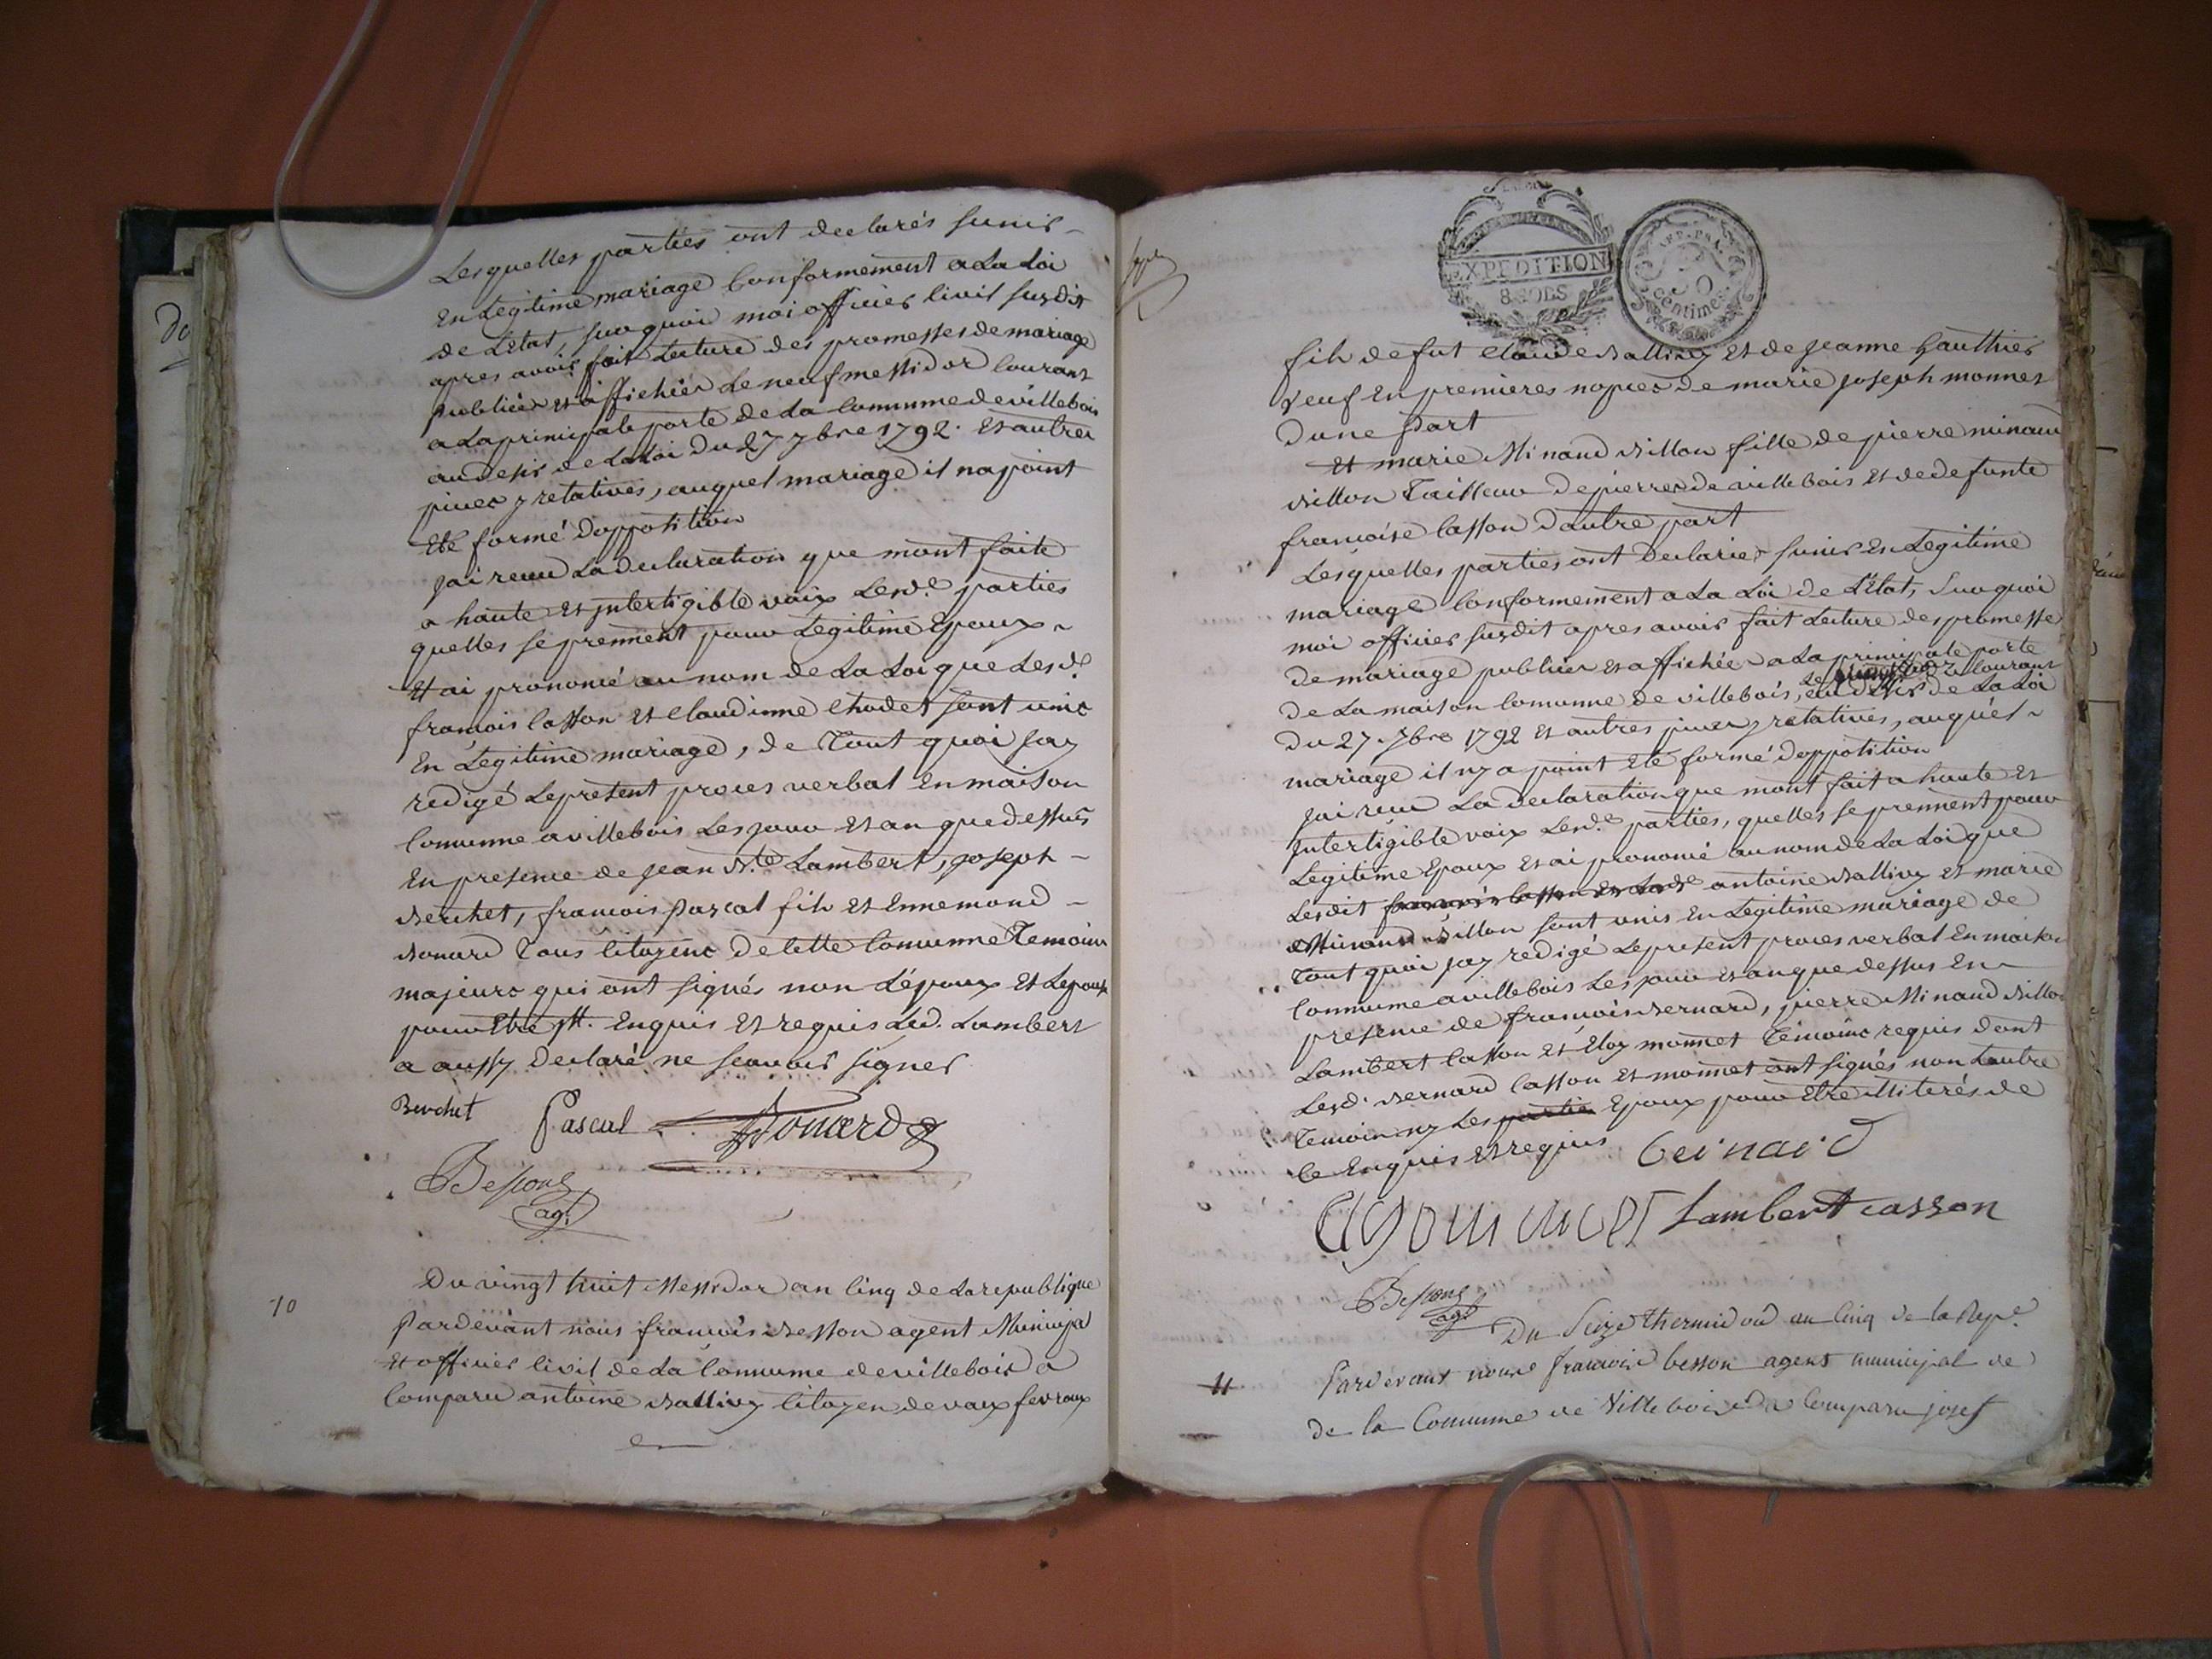 Lesquelles parties ont declarés sunir
En Legitime mariage Conformement a La Loi
de L'Etat, sur quoi moi officier Civil susdit
apres avoir fait Lecture des promesses de mariage
publiées et affichées Le neuf messidor Courant
a La principale porte de La Commune de villebois
au desir de La Loi Du 27 7bre 1792. Et autres
pieces y relatives, auquel mariage il na point
Eté formé Doppotition
Jai recu La declaration que mont faite
a haute et Intertigible voix Lesd.es parties
quelles se prennent pour Legitime Epoux
Et ai prononcé au nom de La Loi que Lesd.
francois Casson et Claudinne Chodet sont unis
En Legitime mariage, de Tout quoi Jay
redigé Le present proces verbal En maison
Commune a villebois Les jour et an que dessus
En presence de Jean Bte Lambert, Joseph
Berchet, francois Pascal fils et Ennemond
Bonard Tous Citoyens De Cette Commune Temoins
majeurs qui ont signés non L'époux Et Lepouse
pour Etre Ill. Enquis Et requis Led. Lambert
a aussy Declaré ne scavoir signer
Berchet Pascal Bonard
Besson
agt
10
Du vingt huit Messidor an Cinq de La republique
Pardevant nous francois Besson agent Municipal
Et officier Civil de La Commune de villebois a
Comparu antoine Ballivy Citoyen de vaux fevroux
EXPEDITION
8 SOLS
50
centimes
fils de fut Claude Ballivy et de Jeanne Gauthier
veuf En premieres nopces de marie Joseph monnet
Dune Part
Et marie Minand Billon fille de pierre minand
Billon Tailleur De pierres de villebois Et de defunte
francoise Casson Dautre part
Lesquelles parties ont Declarées sunir En Legitime
mariage Conformement a La Loi de L'Etat, Sur quoi
moi officier susdit apres avoir fait Lecture des promesse
De mariage publiées et affichées a La principale porte
Le Courant
De La maison Commune de villebois, au desir de La Loi
Du 27 7bre 1792 Et autres pieces y relatives, auquel
mariage il ny a point Eté formé Doppotition
Jai recu La declaration que mont fait a haute et
Intertigible voix Lesd.es parties, quelles se prennent pour
Legitime Epoux et ai prononcé au nom de La Loi que
Lesdit francois Casson et Lad.e antoine Ballivy et marie
Minand Billon sont unis En Legitime mariage de
Tout quoi Jay redigé Le present proces verbal En maison
Commune a villebois Les jour et an que dessus En
presence de francois Bernard, pierre Minand Billon
Lambert Casson Et Eloy monnet Temoins requis dont
Lesd. Bernard Casson et monnet ont signés non Lautre
Temoin ny Les partie Epoux pour Etre Illiterés de
Ce Enquis et requis Beinaid
Lambert casson
Besson
agt
Du Seize thermidord an Cinq de la Rep.e
11
Pardevant nous francois besson agent municipal de
de la Commune de Villebois a Comparu josef